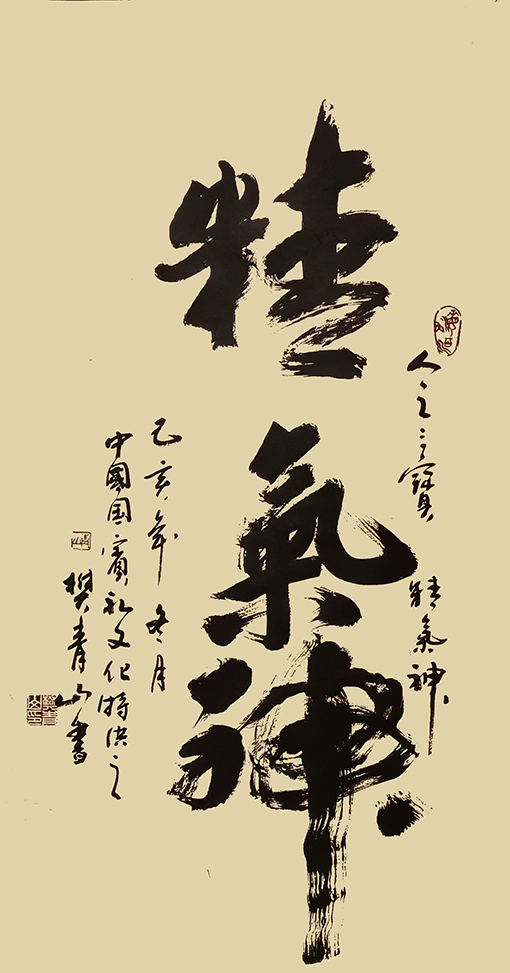 精氣神
人之三寶 精氣神
乙亥年 冬月
中國国賓礼文化特供之
樊青山書